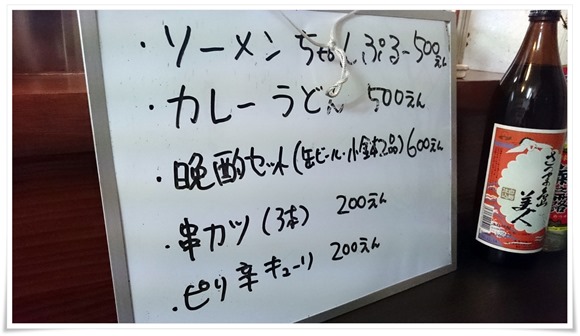 ・ソーメンちゃんぷるー500えん
・カレーうどん 500えん
・晩酌セット(缶ビール・小鉢2品)600えん
・串カツ(3本) 200えん
・ピリ辛キューリ 200えん
さつま島美人